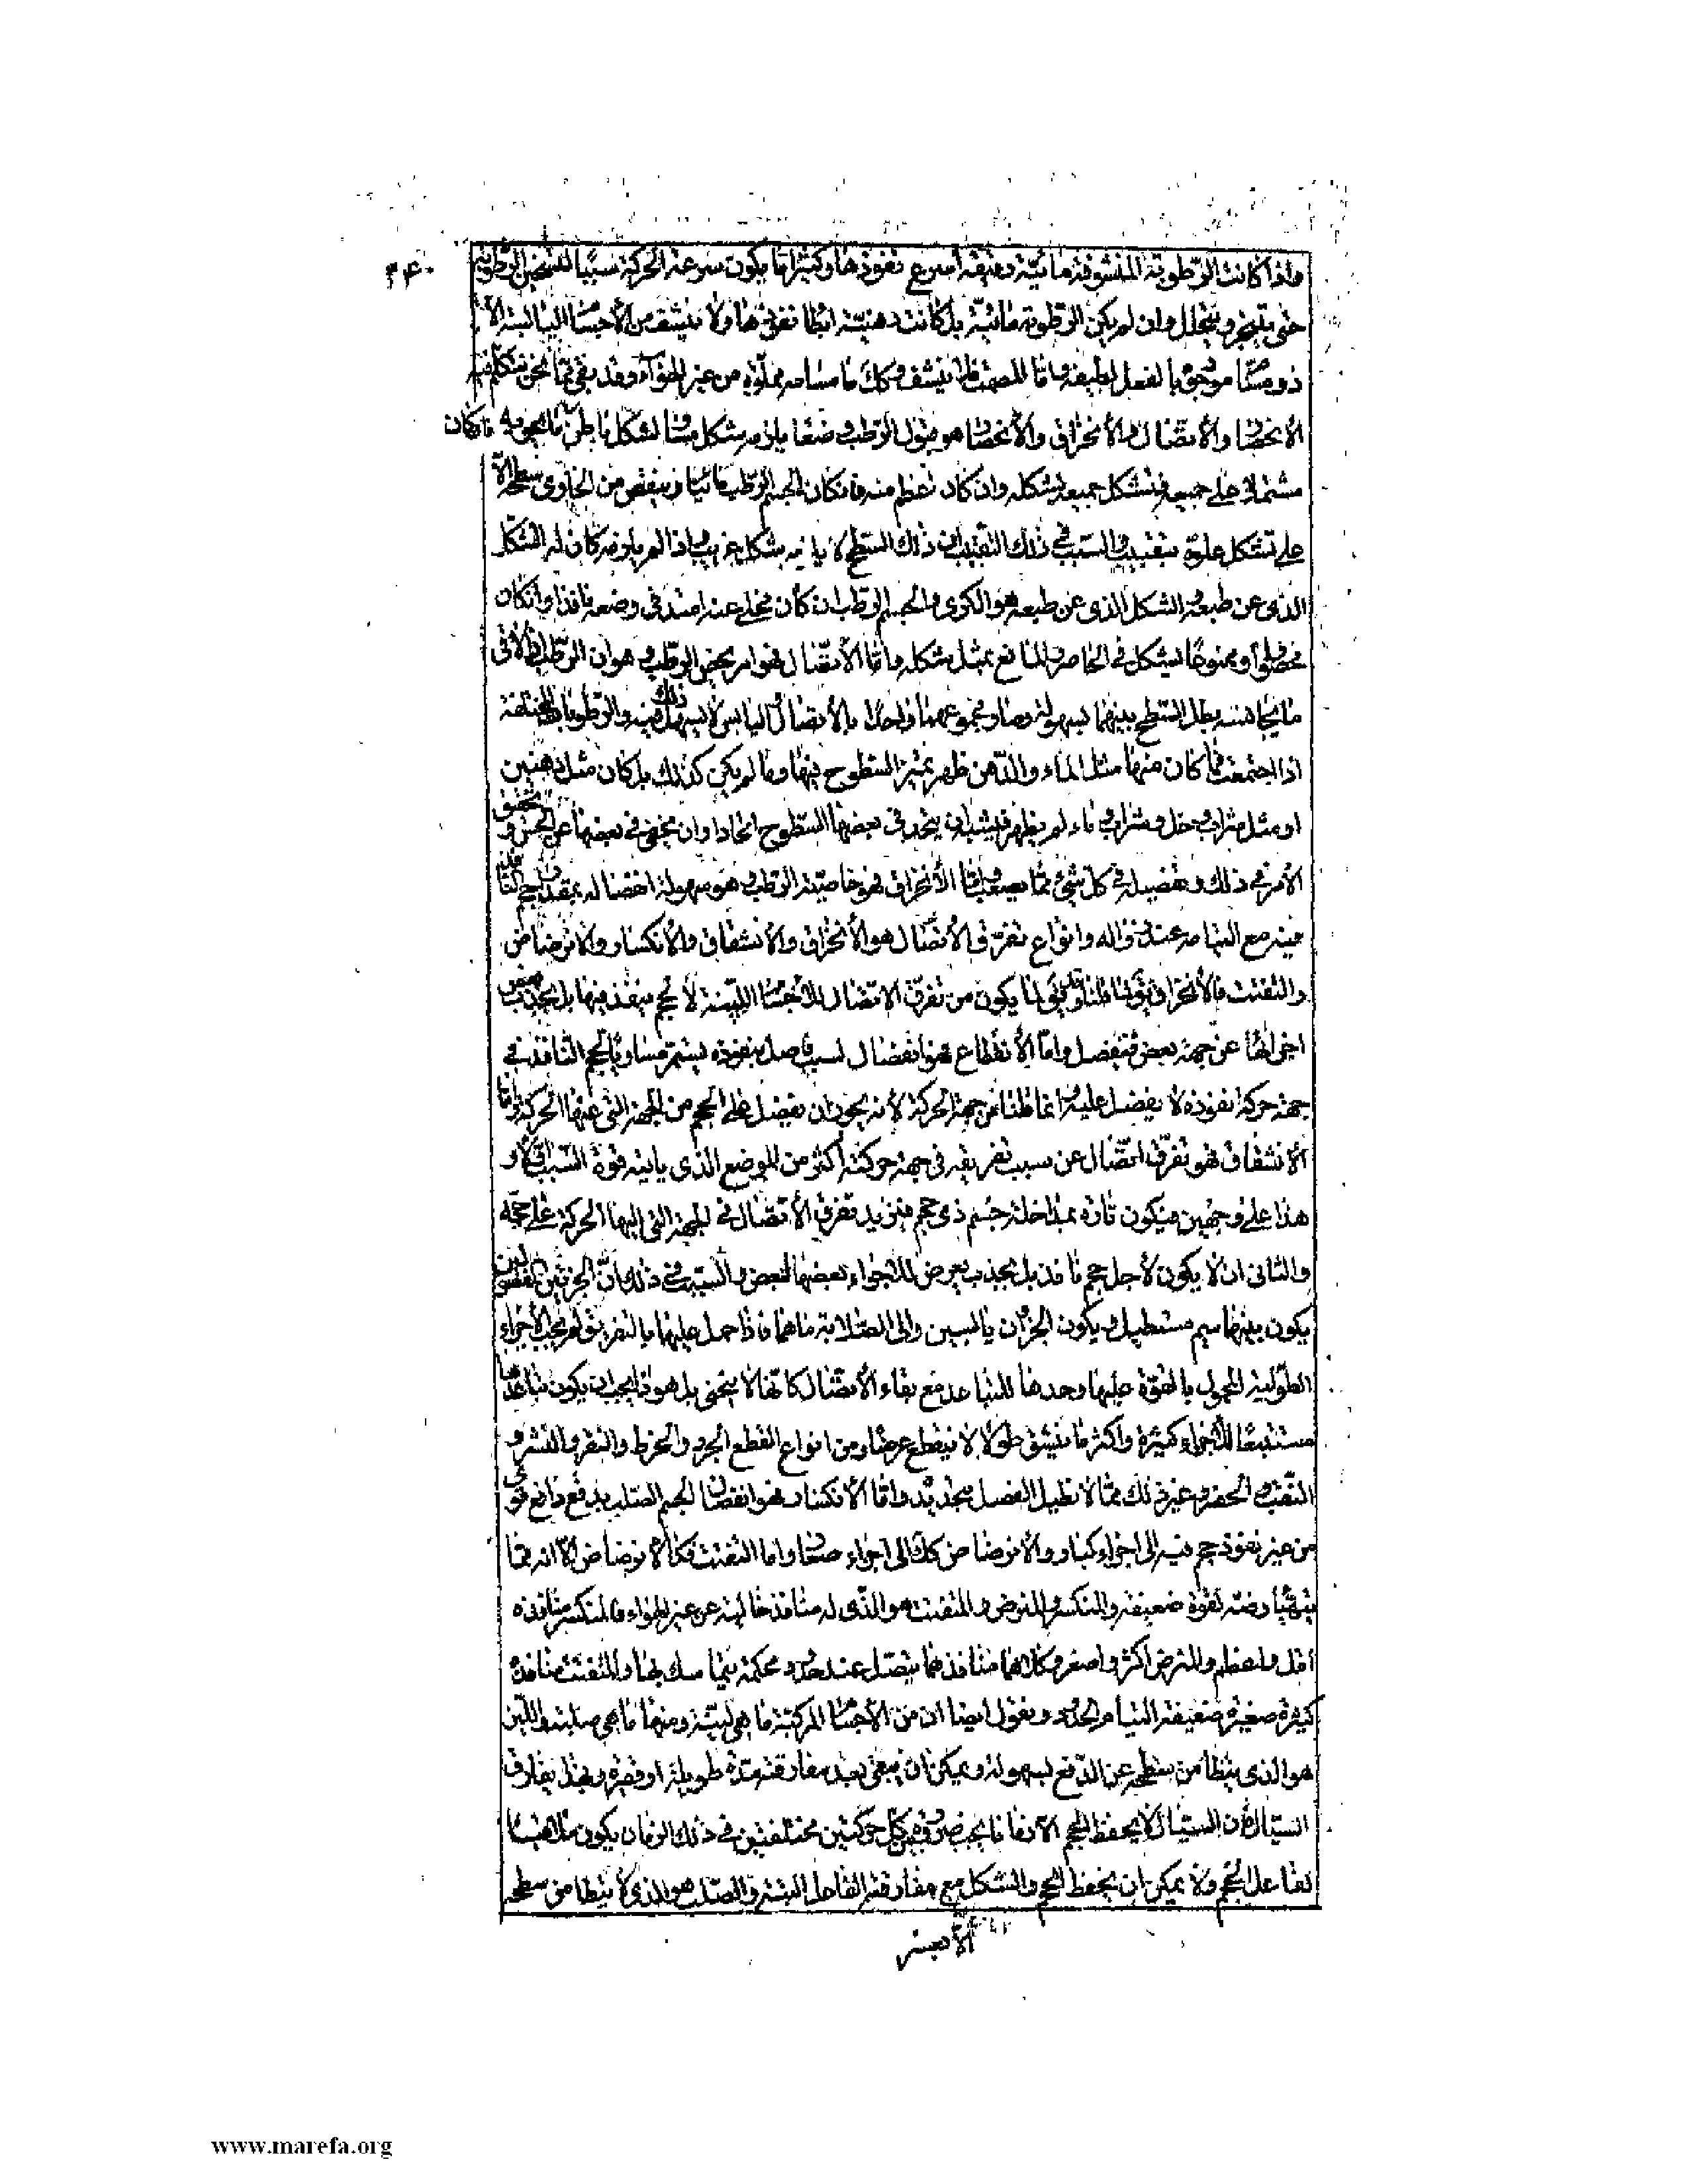 ۳۴۰
فاذا كانت الرّطوبة المنشوفة مائيّة رقيقة اسرع نفوذها وكثيرا ما يكون سرعة الحركة سببًا لتسخين الرطوبة
حتى يتبخر ويتحلل وان لم يكن الرطوبة مائيّة بل كانت دهنيّة ابطا نفوذها ولا ينشف من الأجسام اليابسة الا
ذو مسام موجودة بالفعل لطيفة واما المصمت فلا ينشف وكك ما مسامه مملوّة من غير الهوآء وقد بقى مما نحن نتكلم فيه
الأنحصار والأتصال والأنخراق والأنحصار هو قبول الرّطب وضعا يلزمه شكل مساو لشكل باطن ما يحويه فان كان
مشتملا على جميعه فتشكل جميعه بشكله وان كان اعظم منه فان كان الجسم الرّطب مائيّا وينقص من الحاوى سطحه الا
على تشكل علوّه بتقبيب والسّبب فى ذلك التقبيب ان ذلك السّطح لا يلزمه شكل غريب واذا لم يلزمه كان له الشّكل
الذى عن طبعه والشكل الذى عن طبعه هو الكرى والجسم الرّطب ان كان مخلى عنه امتد فى وضعه نافذا وان كان
محصورا او ممنوعا تشكل فى الحاصر والمانع بمثل شكله واما الأتّصال فهو امر يخص الرطب وهو ان الرطب اذا لاقى
ما يجانسه بطل السّطح بينهما بسهولة وصار مجموعهما واحدًا بالأتصال اليابس لا يسهل ذلك فيه والرّطوبات المختلفة
اذا اجتمعت فما كان منها مثل الماء والدّهن ظهر تميّز السّطوح فيها وما لم يكن كذلك بل كان مثل دهنين
او مثل شراب وخل وشراب وماء لم يظهر فيشبه ان يتحد فى بعضها السّطوح اتحادا وان يخفى فى بعضها عن الحسّ وتحقيق
الأمر فى ذلك وتفصيله فى كل شئ مما يصعب واما الأنخراق فهو خاصيّة الرّطب وهو سهولة انفصاله بمقدار جسم النافذ
فيه مع التيامه عند زواله وانواع تفرّق الأتّصال هو الأنخراق والأنشقاق والأنكسار والانرضاض
والتفتت فالأنخراق يقولنا قلنا وقد يقول لما يكون من تفرّق الاتصال للأجسام الليّنة لا لحجم ينفذ فيها بل لجذب بعض
اجزائها عن جهة بعض فينفصل وامّا الأنقطاع فهو انفصال لسبب فاصل بنفوذه يستمر مساويا لحجم النافذ فى
جهة حركة نفوذه لا يفضل عليه وانما قلنا من جهة الحركة لأنه يجوز ان يفضل على الحجم من الجهة التى عنها الحركة واما
الأنشقاق فهو تفرّق اتّصال عن سبب تفريقه فى جهة حركته اكثر من الموضع الذى ياتيه قوة السّبب اوّلا و
هذا على وجهين فيكون تارة بمداخلة جسم ذى حجم فيزيد تفرق الأتصال فى الجهة التى اليها الحركة على حجمه
والثانى ان لا يكون لأجل حجم نافذ بل لجذب يعرض للأجزاء بعضها لبعض والسّبب فى ذلك ان الجزئين المفصولين
يكون بينهما جسم مستطيل ويكون الجزآن يابسين والى الصّلابة ما هما فاذا حمل عليهما بالتفريق لم يجب الأجزاء
الطّوليّة المحمول بالقوّة عليها وحدها للتباعد مع بقاء الأتصال كانها لا ينحنى بل هو ذا يجب ان يكون تباعدها
مستتبعا للأجزاء كثيرة واكثر ما ينشق طولا لا ينقطع عرضا ومن انواع القطع الجرد والخرط والنقر والنشر و
الثّقب والحفر وغير ذلك مما لا نطيل الفصل بتحديده واما الأنكسار فهو انفصال الجسم الصّلب بدفع دافع قوى
من غير نفوذ حجم فيه الى اجزاء كبار والأنرضاض كك الى اجزاء صغار واما التفتت فكالأنرضاض الا انه مما
يتهيّأ رضه بقوّة ضعيفة والمنكسر والمترضض والمتفتت هو الذى له منافذ خالية عن غير الهواء فالمنكسر منافذه
اقل واعظم والمترضض اكثر واصغر وكلاهما منافذهما يتصل عند حدود محكمة يتماسك بها والمتفتت منافذه
كثيرة صغيرة ضعيفة التيام الحدود ونقول ايضا ان من الأجسام المركبة ما هى ليّنة ومنها ما هى صلبة والليّن
هو الذى يتطامن سطحه عن الدّفع بسهولة ويمكن ان يبقى بعد مفارقته مدة طويلة او قصيرة وبهذا يفارق
السيّال لأن السيّال لا يحفظ الحجم الا زمانا يجب ضرورة بين كل حركتين مختلفتين فى ذلك الزمان يكون ملاقيا
لفاعل الحجم ولا يمكن ان يحفظ الحجم والشكل مع مفارقة الفاعل البتة والصّلب هو الذى لا يتطامن سطحه
الأبعسر
www.marefa.org